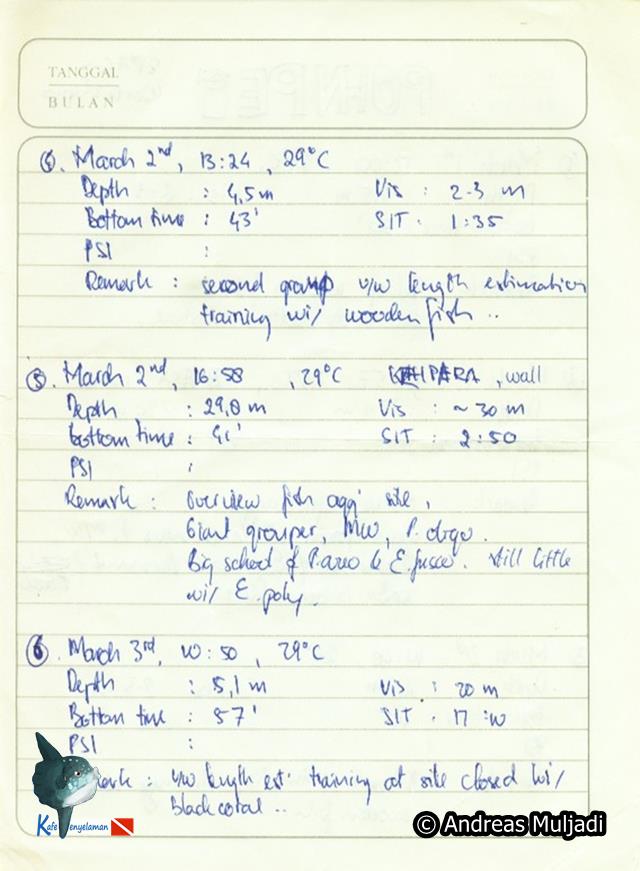 TANGGAL
BULAN
4. March 2nd, 13:24, 29°C
Depth : 4,5m Vis : 2-3 m
Bottom time : 43' SIT. 1:35
PSI :
Remark : second group u/w length estimation
training w/ wooden fish ..
5. March 2nd, 16:58 , 29°C KEHPARA, wall
Depth : 29,0 m Vis : ~ 30 m
bottom time : 41' SIT : 2:50
PSI :
Remark : Overview fish agg' site,
Giant grouper, MW, P.
Big school of P. areo & E. fusco. still little
w/ E. poly.
6. March 3rd, 10:50, 29°C
Depth : 5,1 m Vis : 20 m
Bottom time : 57' SIT. 17:10
PSI :
ark : u/w length est' training at site closed w/
black coral ..
Kafe Penyelaman
© Andreas Muljadi